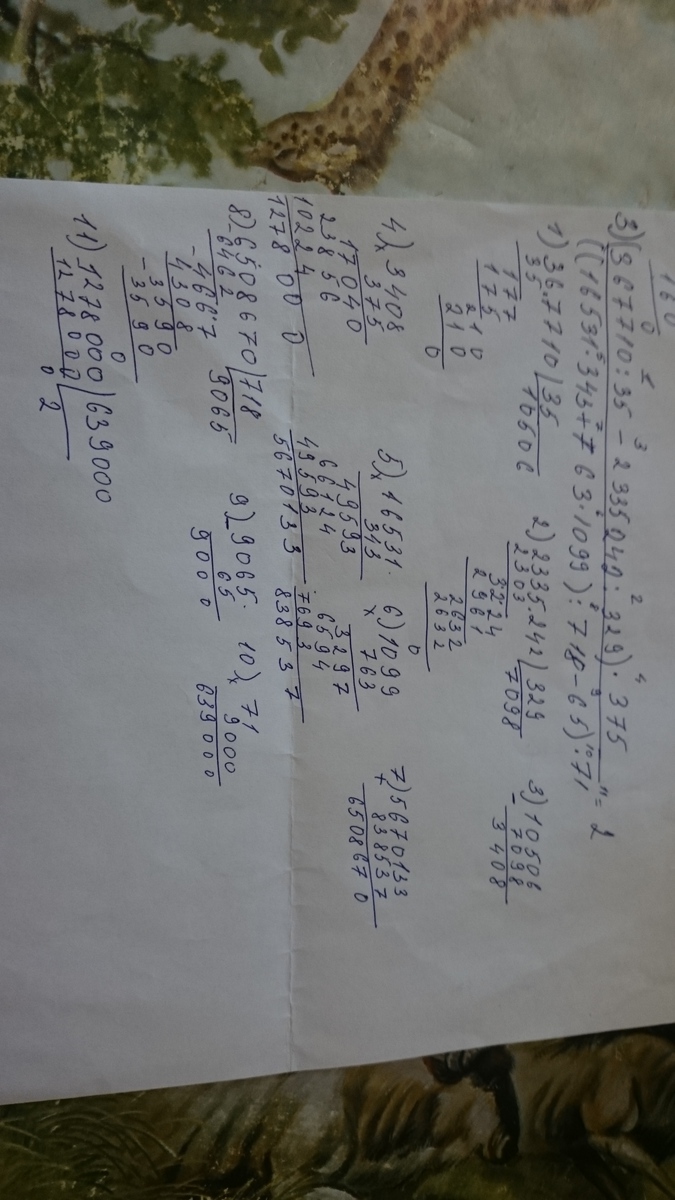 160
0
3) (367710 : 35 - 2335242 : 329) · 375
((16531 · 343 + 763 · 1099) : 718 - 65) · 71 = 2
1) 367710 | 35
35 10506
177
175
210
210
0
2) 2335242 | 329
2303 7098
3224
2961
2632
2632
0
3) 10506
- 7098
3408
4) x 3408
375
17040
23856
10224
1278000
5) x 16531
343
49593
66124
49593
5670133
6) x 1099
763
3297
6594
7693
838537
7) + 5670133
838537
6508670
8) - 6508670 | 718
6462 9065
- 4667
4308
- 3590
3590
0
9) - 9065
65
9000
10) x 71
9000
639000
11) - 1278000 | 639000
1278000 2
0